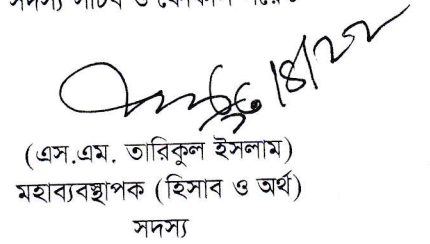 সদস্য সচিব ও
(এস.এম. তারিকুল ইসলাম)
মহাব্যবস্থাপক (হিসাব ও অর্থ)
সদস্য